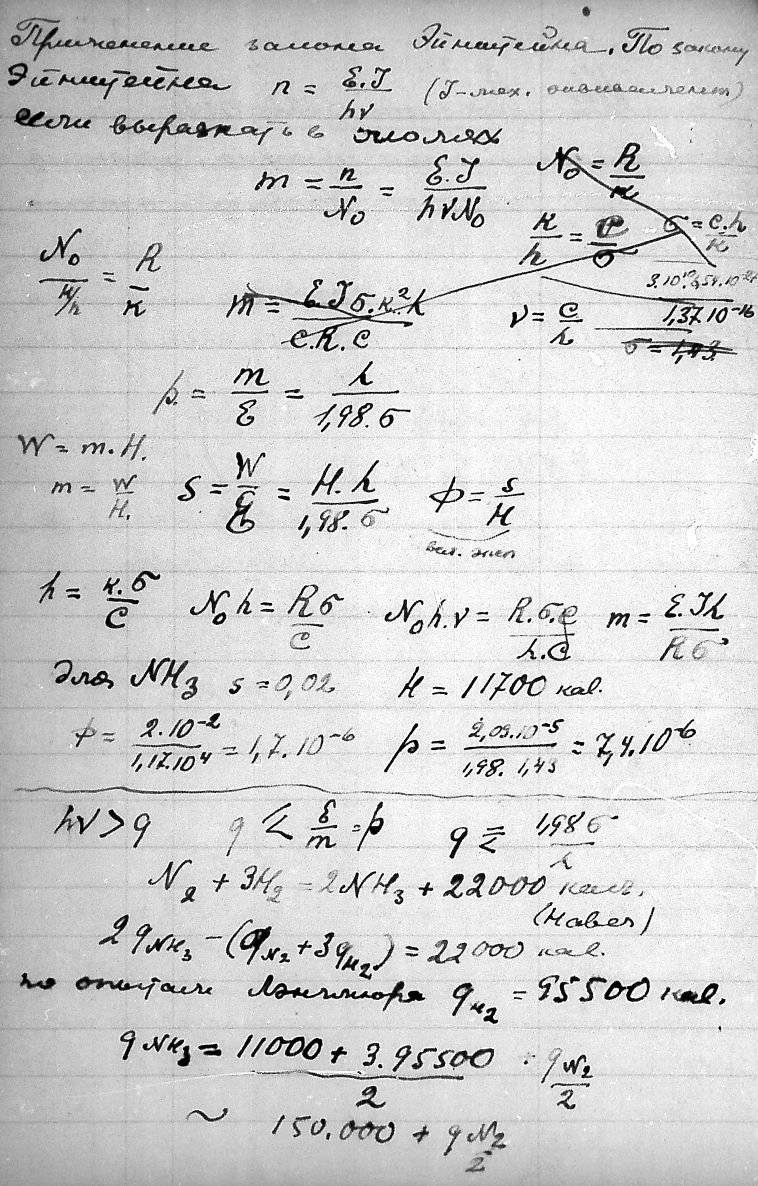 Применение закона Эйнштейна. По закону
Эйнштейна n = E.J/hν (J-мех. эквивалент)
если выражать в молях
m = n/N₀ = E.J/hνN₀ N₀ = R/к
N₀/(к/h) = R/к к/h = c/σ σ = c.h/к
m = E.J σ.к²λ/c.R.c ν = c/λ 1,37.10⁻¹⁶
σ = 1,43
p. = m/E = λ/1,98.σ
W = m.H.
m = W/H. S = W/E = H.λ/1,98.σ ϕ = s/H
h = к.σ/c N₀h = Rσ/c N₀h.ν = R.σ.c/λ.c m = E.Jλ/Rσ
Для NH₃ s = 0,02 H = 11700 кал.
ϕ = 2.10⁻²/1,17.10⁴ = 1,7.10⁻⁶ p = 2,09.10⁻⁵/1,98.1,43 = 7,4.10⁻⁶
hν > q q ≤ E/m = p q ≤ 1,98σ/λ
N₂ + 3H₂ = 2NH₃ + 22000 кал.
(Haber)
2qNH₃ − (qN₂ + 3qH₂) = 22000 кал.
по опытам Лэнгмюра qH₂ = 95500 кал.
qNH₃ = 11000 + 3.95500/2 + qN₂/2
~ 150.000 + qN₂/2